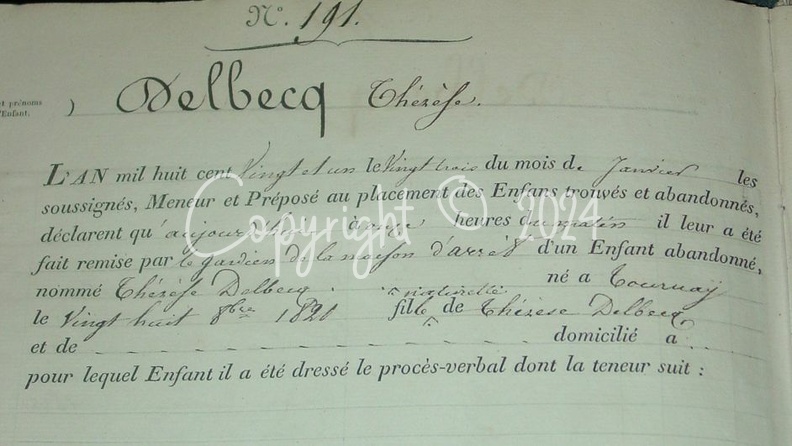 N°. 191.
et prénoms
l'Enfant.
) Delbecq Thérèse.
L'AN mil huit cent Vingt et un le Vingt trois du mois de Janvier les
soussignés, Meneur et Préposé au placement des Enfans trouvés et abandonnés,
déclarent qu'aujourd'hui à onze heures du matin il leur a été
fait remise par le gardien de la maison d'arrêt d'un Enfant abandonné,
nommé Thérèse Delbecq né a Tournay
naturelle
le Vingt huit 8bre 1820 fille de Thérèse Delbecq
et de domicilié a
pour lequel Enfant il a été dressé le procès-verbal dont la teneur suit :
Copyright © 2024